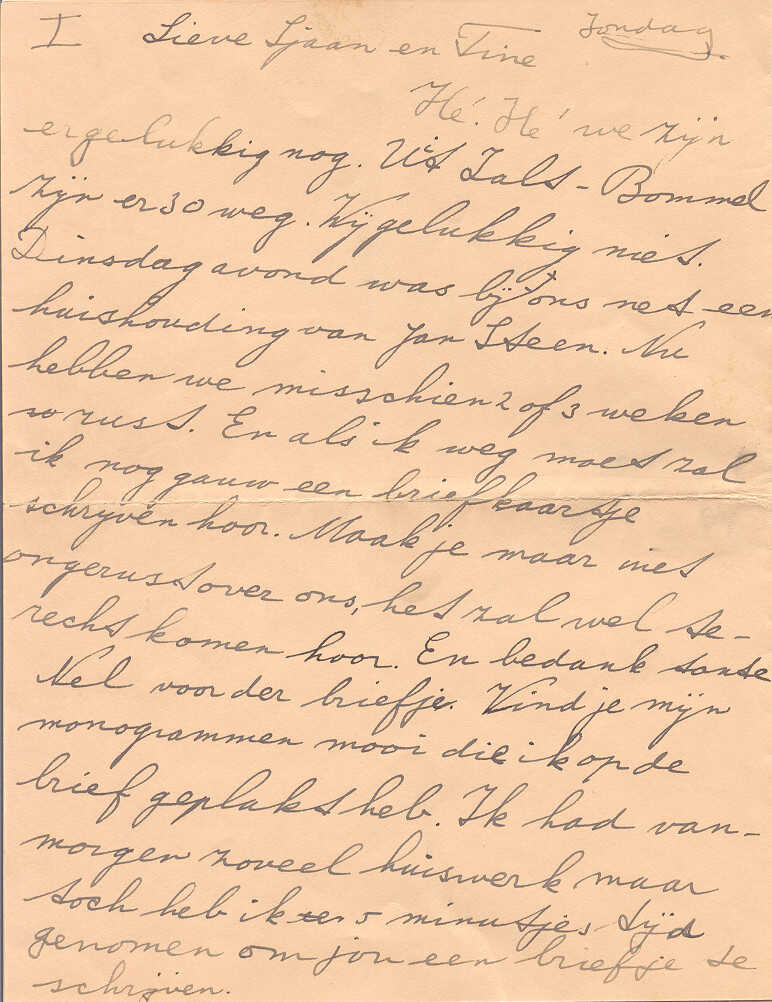 I Lieve Sjaan en Tine Zondag.
Hé! Hé we zijn
er gelukkig nog. Uit Zalt-Bommel
zijn er 30 weg. Wij gelukkig niet.
Dinsdagavond was bij ons net een
huishouding van Jan Steen. Nu
hebben we misschien 2 of 3 weken
rust. En als ik weg moet zal
ik nog gauw een briefkaartje
schrijven hoor. Maak je maar niet
ongerust over ons, het zal wel te-
recht komen hoor. En bedank tante
Nel voor der briefje. Vind je mijn
monogrammen mooi die ik op de
brief geplakt heb. Ik had van-
morgen zoveel huiswerk maar
toch heb ik er 5 minuutjes tijd
genomen om jou een briefje te
schrijven.